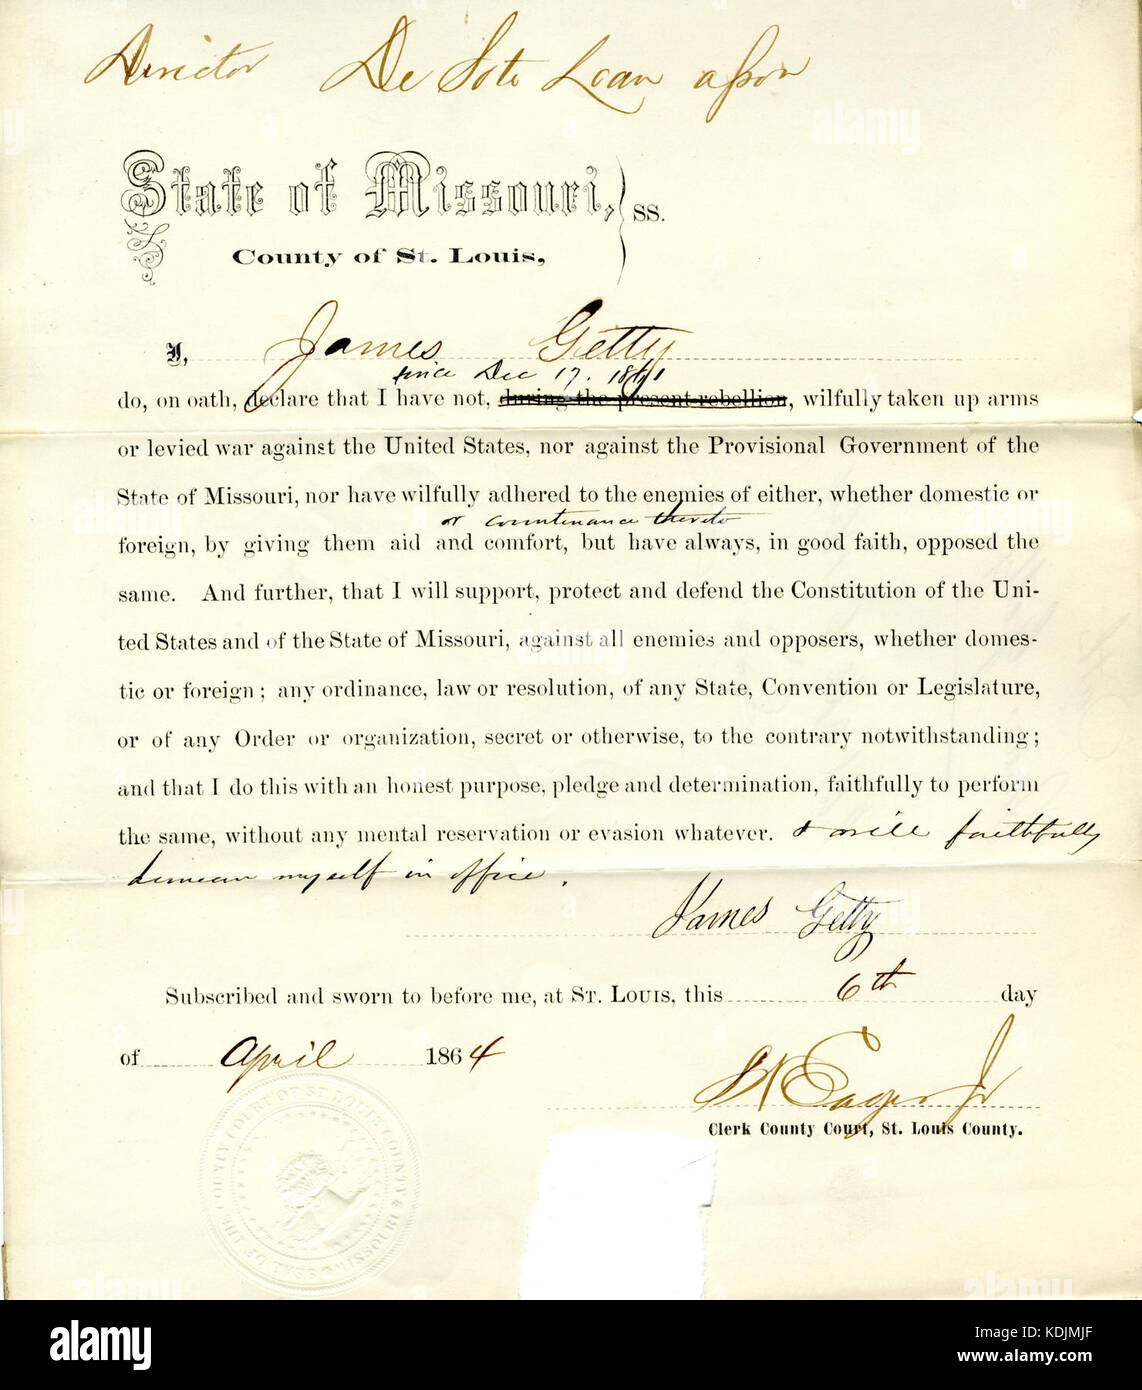 Director De Soto Loan asson
State of Missouri, } ss.
County of St. Louis,
I, James Getty
since Dec 17. 1861
do, on oath, declare that I have not, during the present rebellion, wilfully taken up arms
or levied war against the United States, nor against the Provisional Government of the
State of Missouri, nor have wilfully adhered to the enemies of either, whether domestic or
or countenance thereto
foreign, by giving them aid and comfort, but have always, in good faith, opposed the
same. And further, that I will support, protect and defend the Constitution of the Uni-
ted States and of the State of Missouri, against all enemies and opposers, whether domes-
tic or foreign; any ordinance, law or resolution, of any State, Convention or Legislature,
or of any Order or organization, secret or otherwise, to the contrary notwithstanding;
and that I do this with an honest purpose, pledge and determination, faithfully to perform
the same, without any mental reservation or evasion whatever. & will faithfully
demean myself in office.
James Getty
Subscribed and sworn to before me, at St. Louis, this 6th day
of April 1864
Eager Jr
Clerk County Court, St. Louis County.
SEAL OF THE COUNTY COURT OF ST. LOUIS COUNTY MISSOURI
alamy
Image ID: KDJMJF
www.alamy.com